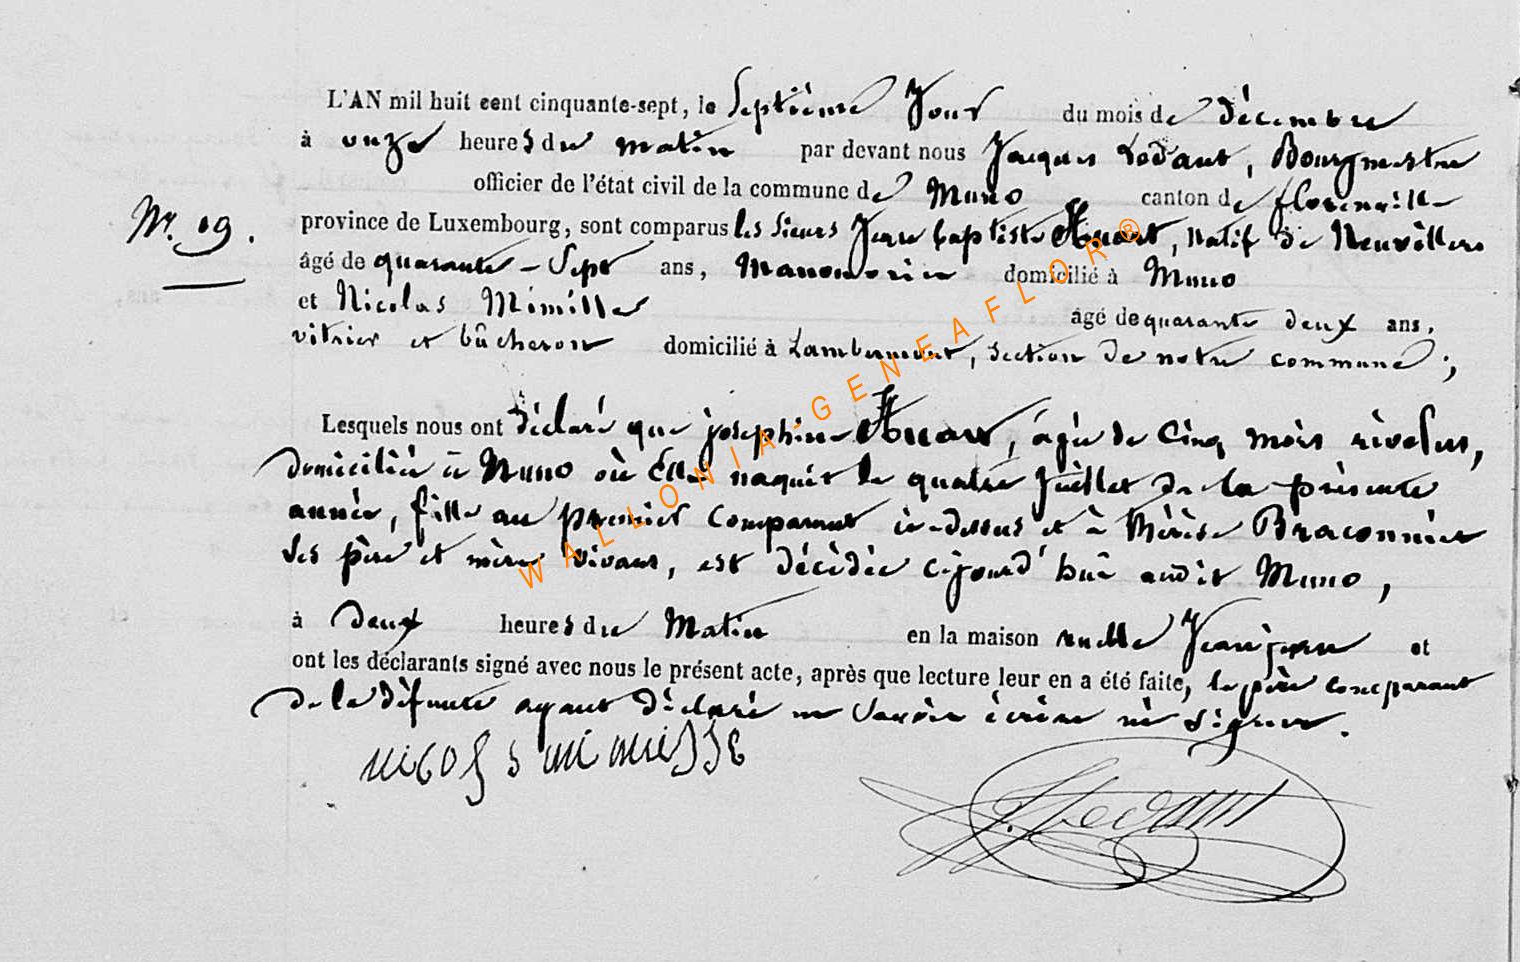 L'AN mil huit cent cinquante-sept, le Septième Jour du mois de décembre
à onze heures du matin par devant nous Jacques Lodant, Bourgmestre
officier de l'état civil de la commune de Muno canton de florenville
Nr. 19.
province de Luxembourg, sont comparus les Sieurs Jean baptiste Huart, Natif de Neuvillers
âgé de quarante-Sept ans, Manouvrier domicilié à Muno
et Nicolas Mimille âgé de quarante deux ans,
vitrier et bûcheron domicilié à Lambermont, section de notre commune;
Lesquels nous ont déclaré que joséphine Huart, âgée de Cinq mois révolus,
domiciliée à Muno où Elle naquit le quatre Juillet de la présente
année, fille au premier Comparant ci-dessus et à thérèse Braconnier
Ses père et mère vivans, est décédée cejourd'hui audit Muno,
à deux heures du Matin en la maison ruelle Jeanjean et
ont les déclarants signé avec nous le présent acte, après que lecture leur en a été faite, le père comparant
de la défunte ayant déclaré ne Savoir écrire ni Signer.
WALLONIA-GENEAFLOR®